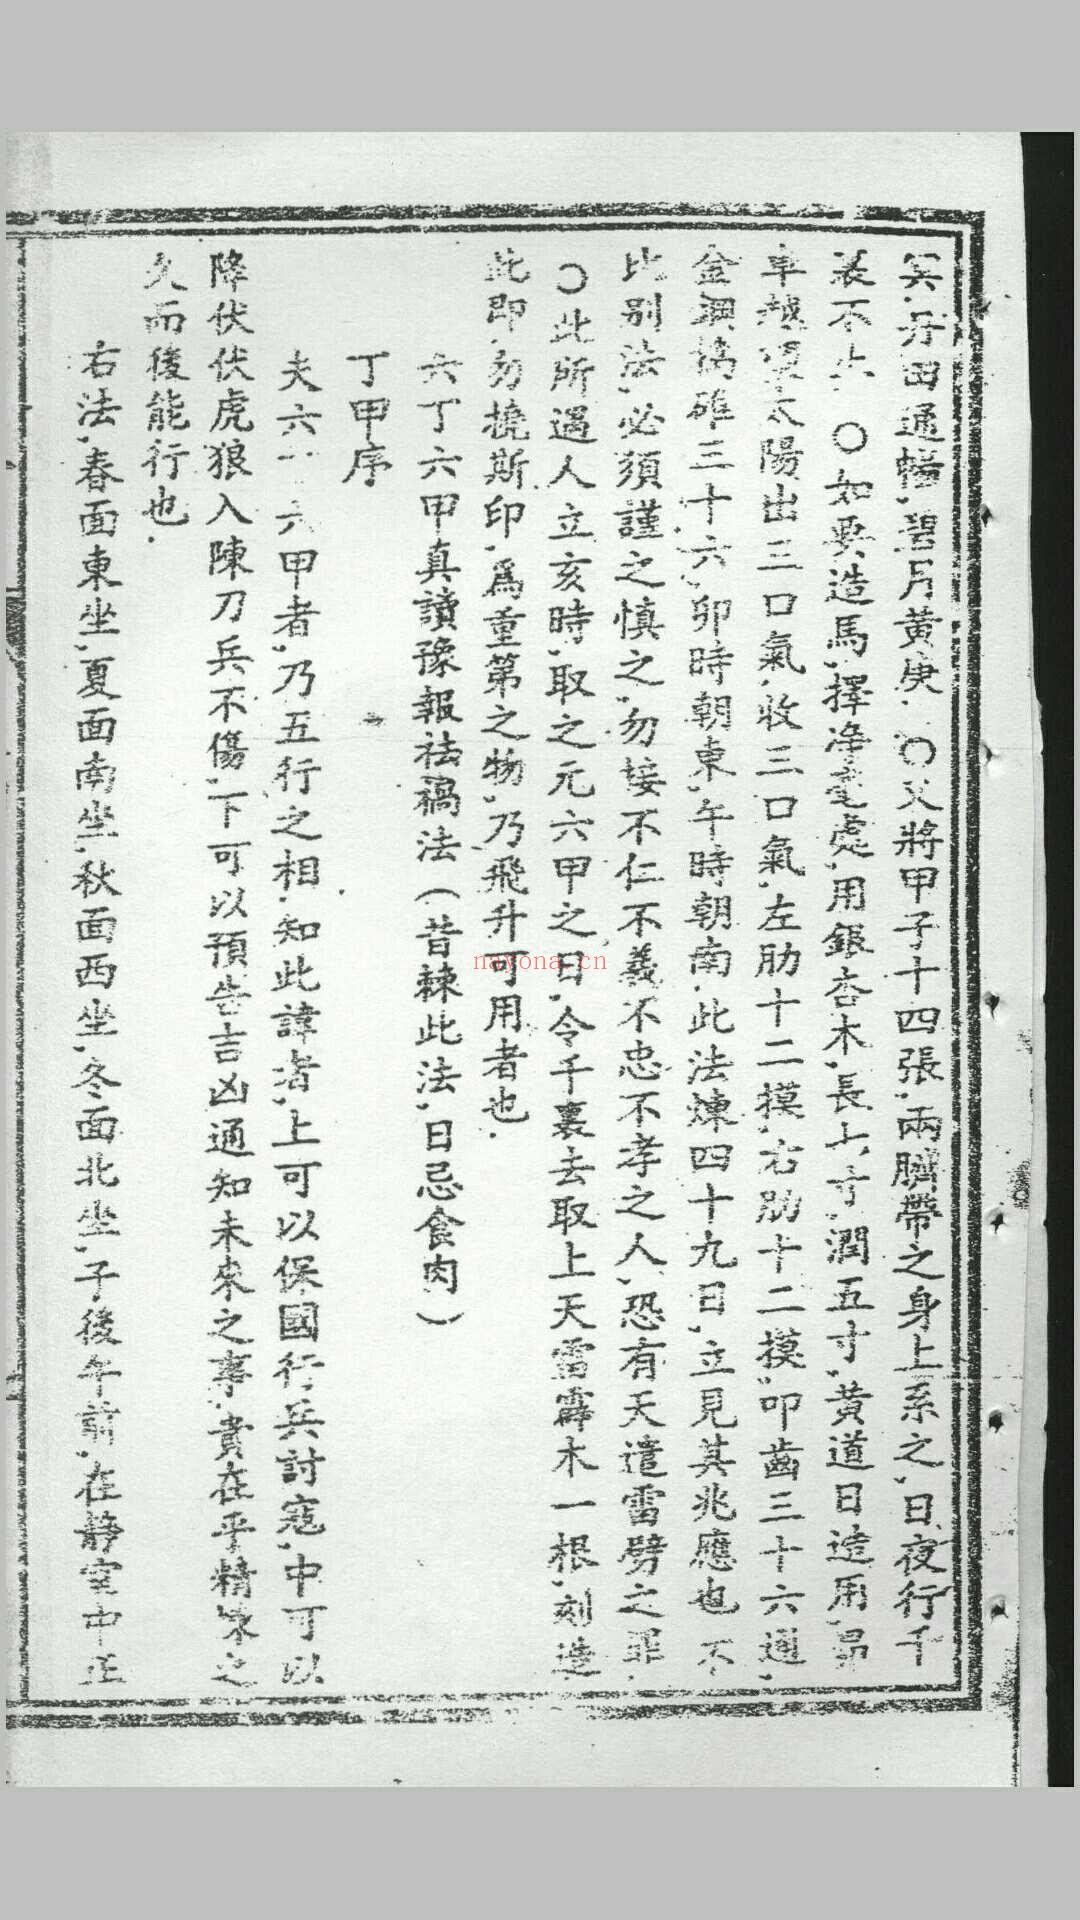 丹田通暢、碧月黃庚、〇又將甲子十四張、兩臍帶之身上系之、日夜行千
不、〇如要造馬、擇淨處、用銀杏木、長七寸、潤五寸、黃道日造用、
車越太陽出三口氣、收三口氣、左肋十二摸、右肋十二摸、叩齒三十六通、
金三十六、卯時朝東、午時朝南、此法煉四十九日、立見其兆應也、不
比别法、必須謹之慎之、勿接不仁不義不忠不孝之人、恐有天遣雷劈之罪、
〇此所遇人立亥時、取之元六甲之日、令千裏去取上天雷霹木一根、刻造
此印、勿撓斯印、爲重第之物、乃飛升可用者也.
六丁六甲真讀豫報祛禍法（昔棘此法、日忌食肉）
丁甲序
夫六六甲者、乃五行之相、知此諱者、上可以保國行兵討寇、中可以
降伏伏虎狼入陳刀兵不傷、下可以預告吉凶通知未來之事、貴在乎精之
久而後能行也.
右法、春面東坐、夏面南坐、秋面西坐、冬面北坐、子後午前、在靜室中正
nayona.cn